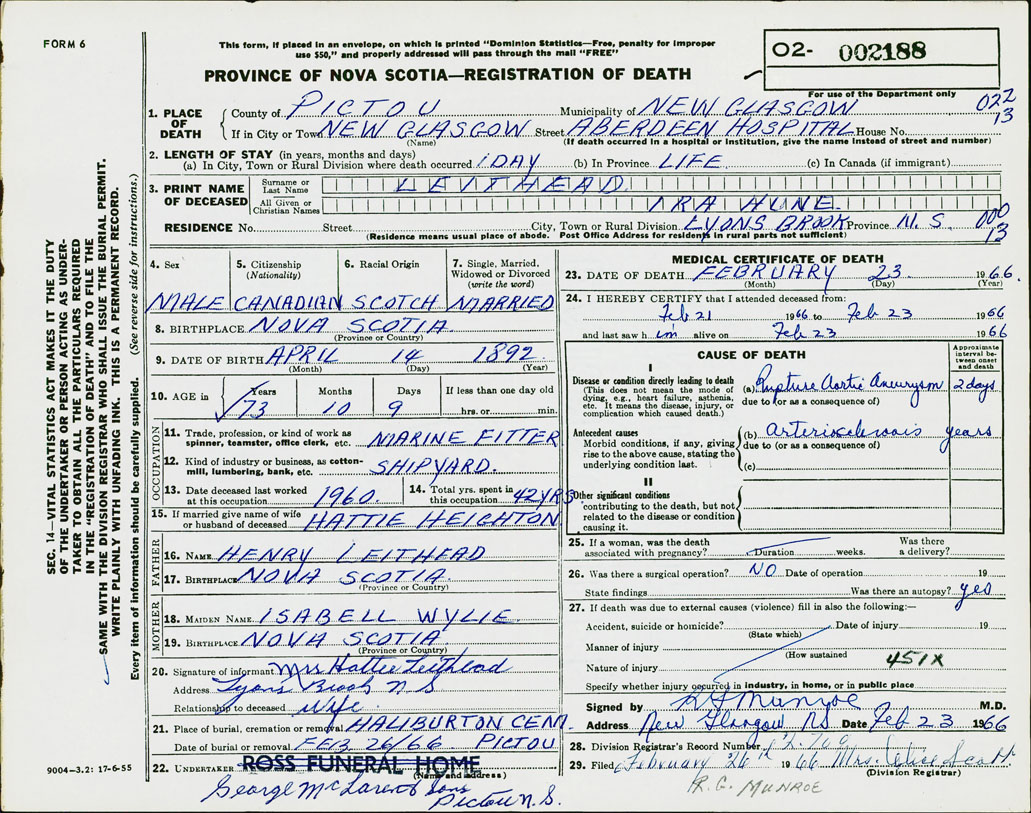 FORM 6
This form, if placed in an envelope, on which is printed "Dominion Statistics—Free, penalty for improper
use $50," and properly addressed will pass through the mail "FREE"
PROVINCE OF NOVA SCOTIA—REGISTRATION OF DEATH
O2- 002188
For use of the Department only
022
13
1. PLACE OF DEATH
County of PICTOU Municipality of NEW GLASGOW
If in City or Town NEW GLASGOW Street ABERDEEN HOSPITAL House No.
(Name) (If death occurred in a hospital or institution, give the name instead of street and number)
2. LENGTH OF STAY (in years, months and days)
(a) In City, Town or Rural Division where death occurred 1 DAY (b) In Province LIFE (c) In Canada (if immigrant)
3. PRINT NAME OF DECEASED
Surname or Last Name LEITHEAD
All Given or Christian Names IRA HUNE
RESIDENCE No. Street City, Town or Rural Division LYONS BROOK Province N. S
(Residence means usual place of abode. Post Office Address for residents in rural parts not sufficient)
000
13
4. Sex 5. Citizenship (Nationality) 6. Racial Origin 7. Single, Married, Widowed or Divorced (write the word)
MALE CANADIAN SCOTCH MARRIED
8. BIRTHPLACE NOVA SCOTIA
(Province or Country)
9. DATE OF BIRTH APRIL 14 1892
(Month) (Day) (Year)
10. AGE in Years Months Days If less than one day old
73 10 9 hrs. or min.
OCCUPATION
11. Trade, profession, or kind of work as spinner, teamster, office clerk, etc. MARINE FITTER
12. Kind of industry or business, as cotton-mill, lumbering, bank, etc. SHIPYARD.
13. Date deceased last worked at this occupation 1960. 14. Total yrs. spent in this occupation 42 YRS
15. If married give name of wife or husband of deceased HATTIE HEIGHTON
FATHER
16. NAME HENRY LEITHEAD
17. BIRTHPLACE NOVA SCOTIA.
(Province or Country)
MOTHER
18. MAIDEN NAME ISABELL WYLIE.
19. BIRTHPLACE NOVA SCOTIA
(Province or Country)
20. Signature of informant Mrs Hattie Leithead
Address Lyons Brook N S
Relationship to deceased Wife.
21. Place of burial, cremation or removal HALIBURTON CEM.
Date of burial or removal FEB. 26/66 PICTOU
22. UNDERTAKER ROSS FUNERAL HOME
(Name and address)
George McLaren & Sons
Pictou N. S.
MEDICAL CERTIFICATE OF DEATH
23. DATE OF DEATH FEBRUARY 23 1966.
(Month) (Day) (Year)
24. I HEREBY CERTIFY that I attended deceased from:
Feb 21 1966 to Feb 23 1966
and last saw h im alive on Feb 23 1966
CAUSE OF DEATH
Approximate interval between onset and death
I
Disease or condition directly leading to death
(This does not mean the mode of dying, e.g., heart failure, asthenia, etc. It means the disease, injury, or complication which caused death.)
(a) Rupture Aortic Aneurysm 2 days
due to (or as a consequence of)
Antecedent causes
Morbid conditions, if any, giving rise to the above cause, stating the underlying condition last.
(b) Arteriosclerosis years
due to (or as a consequence of)
(c)
II
Other significant conditions
contributing to the death, but not related to the disease or condition causing it.
25. If a woman, was the death associated with pregnancy? Duration weeks. Was there a delivery?
26. Was there a surgical operation? NO Date of operation 19
State findings Was there an autopsy? yes
27. If death was due to external causes (violence) fill in also the following:—
Accident, suicide or homicide? Date of injury 19
(State which)
Manner of injury
(How sustained
451X
Nature of injury
Specify whether injury occurred in industry, in home, or in public place
Signed by R G Munroe M.D.
Address New Glasgow NS Date Feb 23 1966
28. Division Registrar's Record Number
29. Filed February 26th 1966 Mrs.
(Division Registrar)
R. G. MUNROE
SEC. 14—VITAL STATISTICS ACT MAKES IT THE DUTY
OF THE UNDERTAKER OR PERSON ACTING AS UNDER-
TAKER TO OBTAIN ALL THE PARTICULARS REQUIRED
IN THE "REGISTRATION OF DEATH" AND TO FILE THE
SAME WITH THE DIVISION REGISTRAR WHO SHALL ISSUE THE BURIAL PERMIT.
WRITE PLAINLY WITH UNFADING INK. THIS IS A PERMANENT RECORD.
Every item of information should be carefully supplied. (See reverse side for instructions.)
9004—3.2: 17-6-55